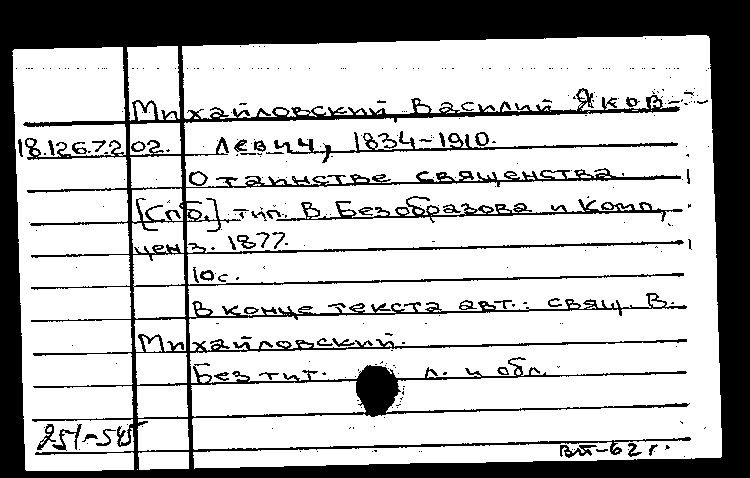 Михайловский, Василий Яков-
18.126.7.202. левич, 1834-1910.
О таинстве священства.
[Спб.] тип. В. Безобразова и Комп,
ценз. 1877.
10с.
В конце текста авт.: свящ. В.
Михайловский.
Без тит. л. и обл.
251-545
ВП-62 г.